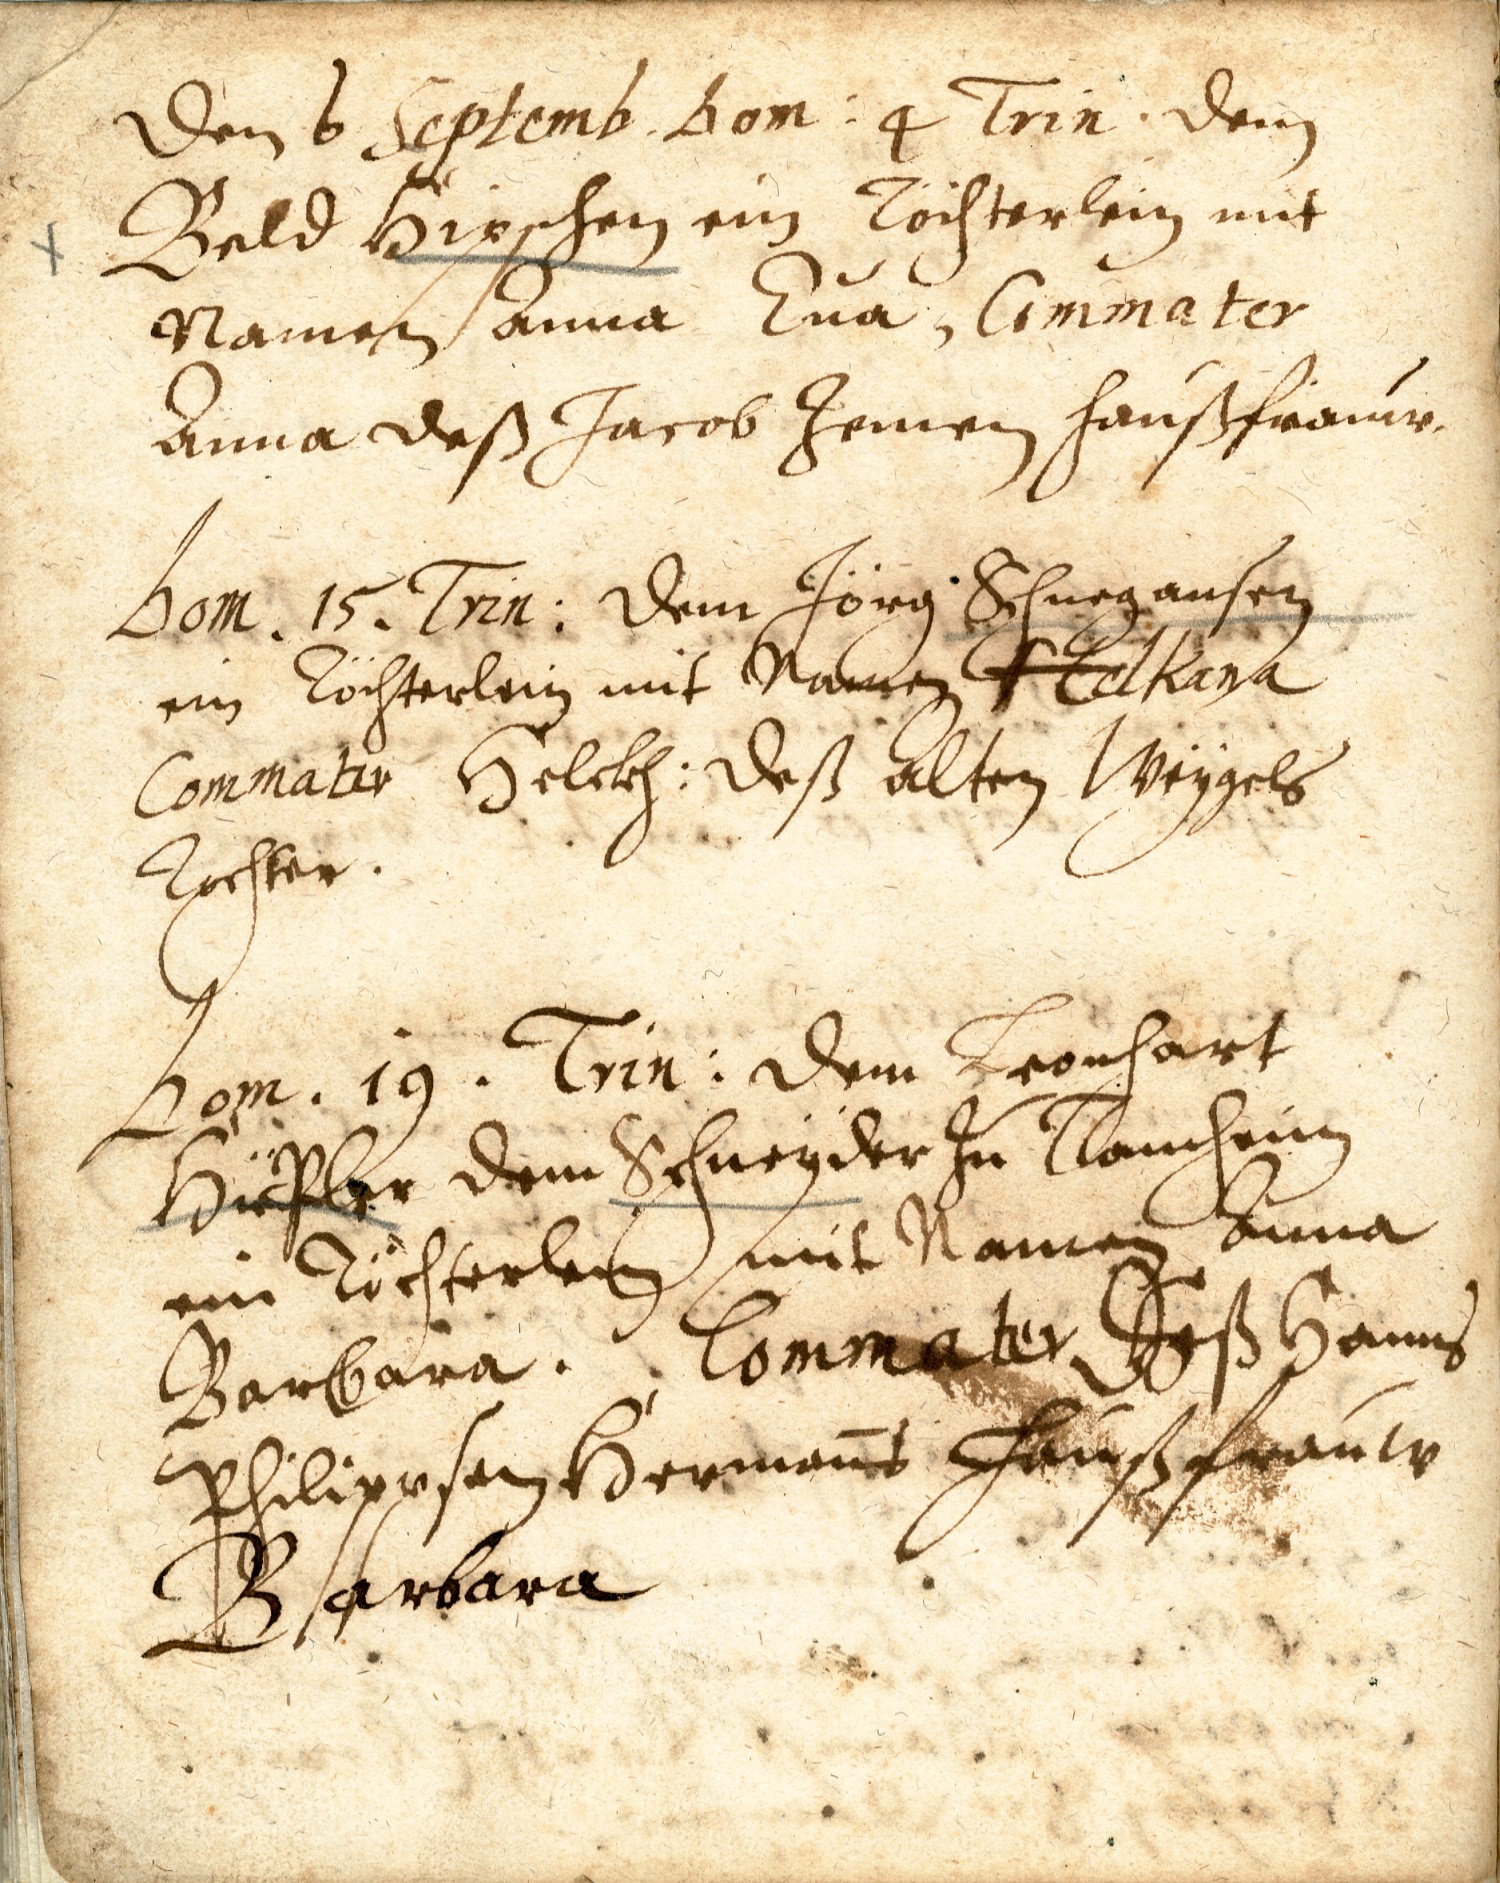 Den 6 Septemb. Dom: 4 Trin. dem
Beld Hirschen ein Töchterlein mit
Namen Anna Eua, Commater
Anna deß Jacob haußfrauw.
Dom. 15. Trin: dem Jörg Schnegansen
ein Töchterlein mit Namen
Commater deß alten Weygels
Tochter.
Dom. 19. Trin: dem Leonhart
dem Schneyder zu
ein Töchterlein mit Namen Anna
Barbara. Commater Deß Hanns
Philippsen Hermañs Haußfrauw
Barbara